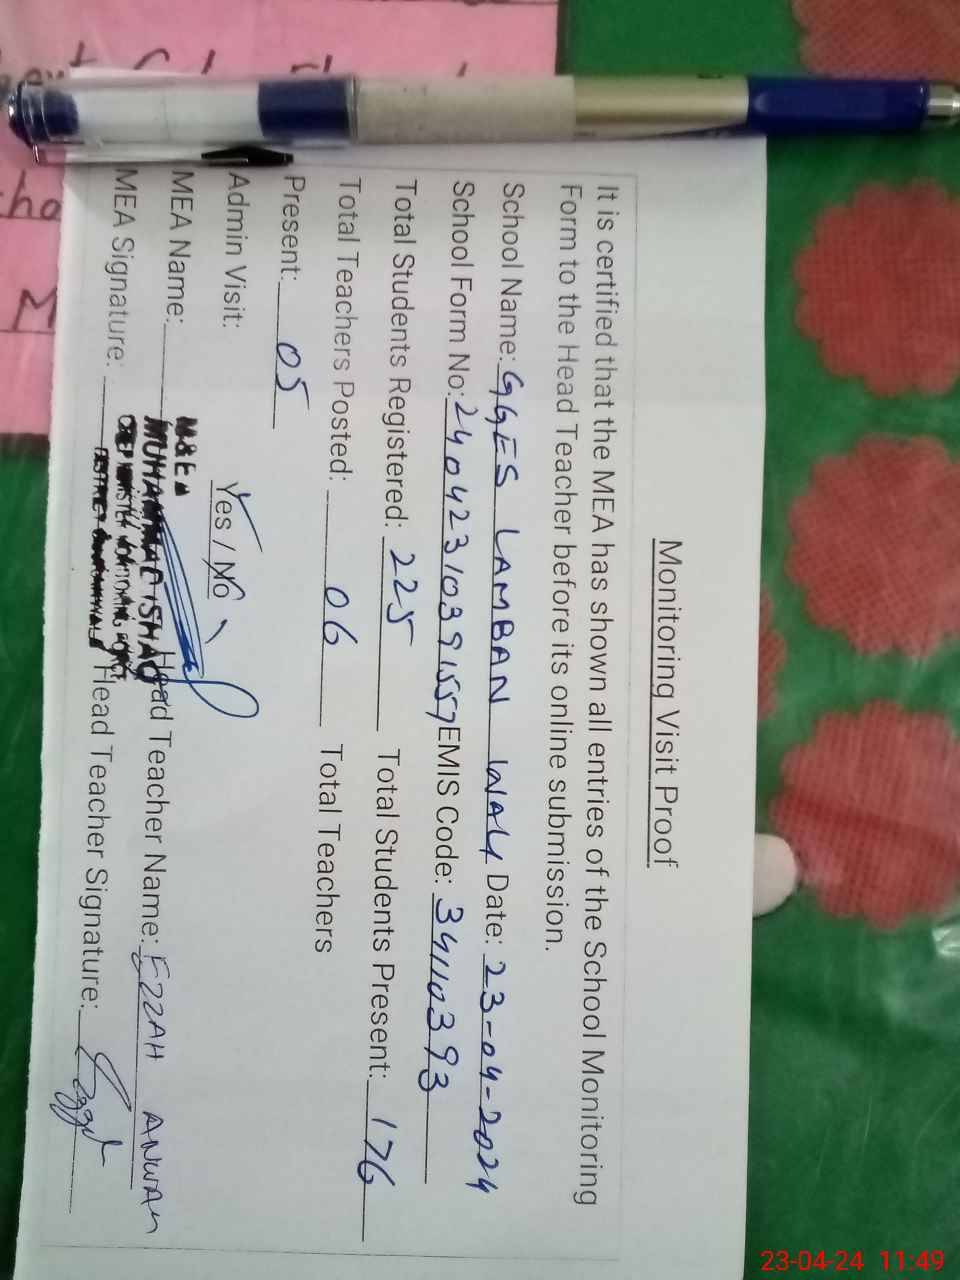 Monitoring Visit Proof
It is certified that the MEA has shown all entries of the School Monitoring
Form to the Head Teacher before its online submission.
School Name: GGES LAMBAN WALI Date: 23-04-2024
School Form No: 24042310391557 EMIS Code: 34110393
Total Students Registered: 225 Total Students Present: 176
Total Teachers Posted: 06 Total Teachers
Present: 05
Admin Visit: Yes / No
MEA Name: MUHAMMAD ISHAQ Head Teacher Name: EZZAH ANWAR
MEA Signature: Head Teacher Signature:
M&EA
23-04-24 11:49